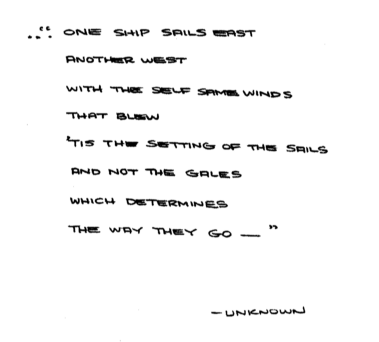 ..." ONE SHIP SAILS EAST
ANOTHER WEST
WITH THE SELF SAME WINDS
THAT BLEW
'TIS THE SETTING OF THE SAILS
AND NOT THE GALES
WHICH DETERMINES
THE WAY THEY GO — "
– UNKNOWN